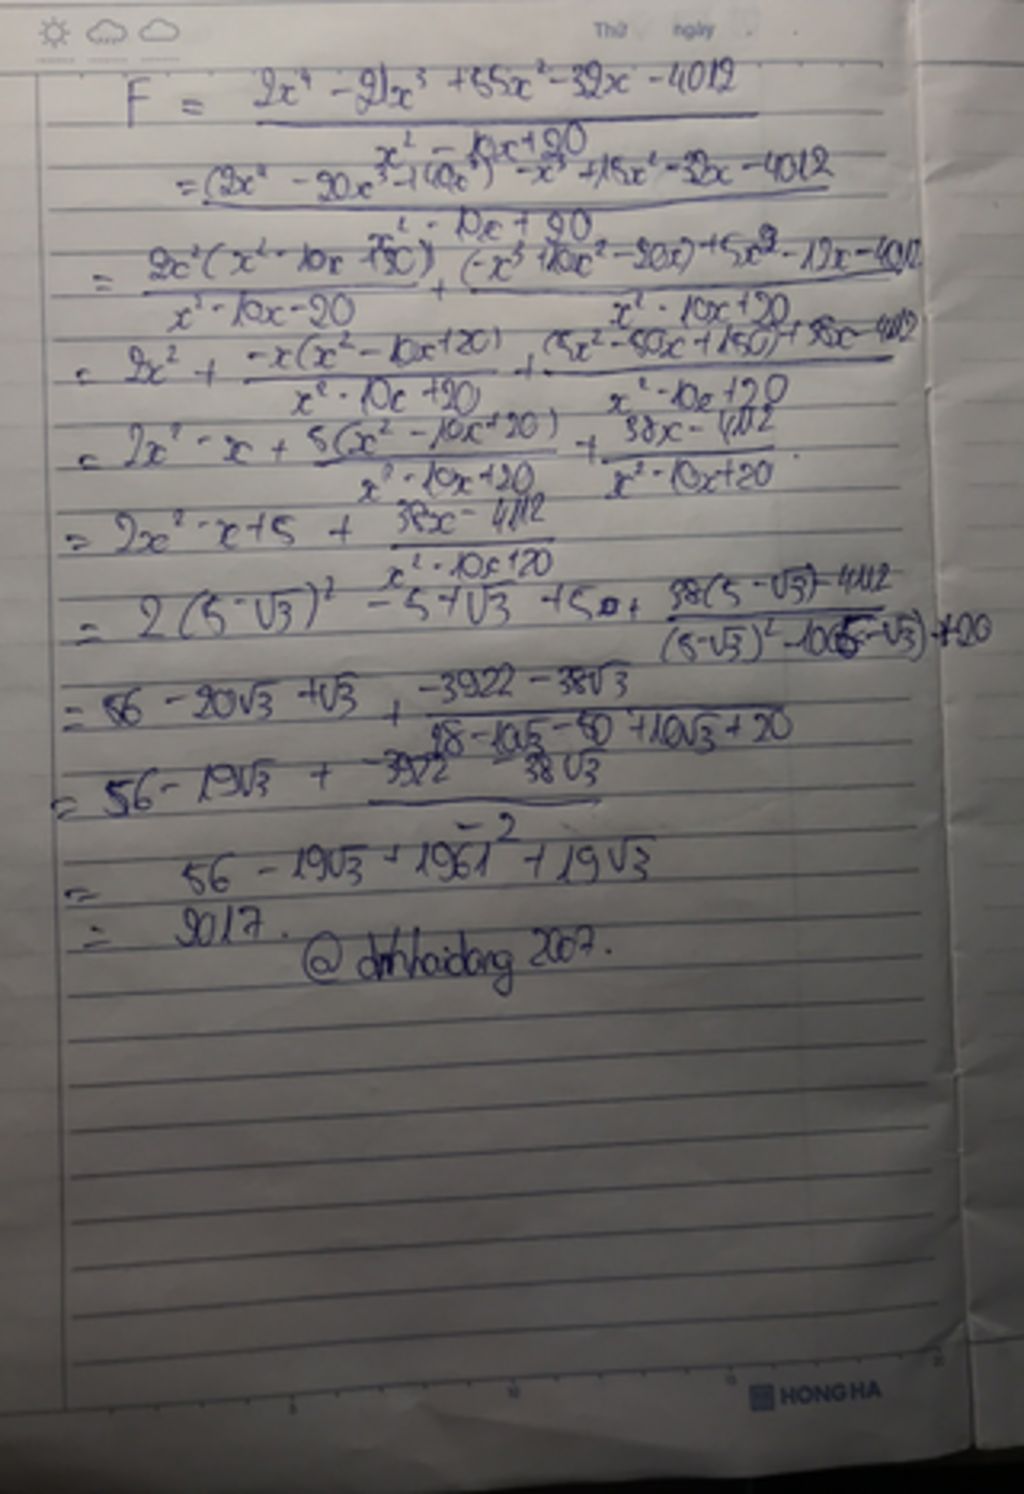 Thứ ngày
F = (2x⁴ - 21x³ + 55x² - 32x - 4012)/(x² - 10x + 20)
= ((2x⁴ - 20x³ + 40x²) - x³ + 15x² - 32x - 4012)/(x² - 10x + 20)
= 2x²(x² - 10x + 20)/(x² - 10x - 20) + ((-x³ + 10x² - 20x) + 5x² - 12x - 4012)/(x² - 10x + 20)
= 2x² + -x(x² - 10x + 20)/(x² - 10x + 20) + ((5x² - 50x + 150) + 38x - 4112)/(x² - 10x + 20)
= 2x² - x + 5(x² - 10x + 20)/(x² - 10x + 20) + (38x - 4112)/(x² - 10x + 20).
= 2x² - x + 5 + (38x - 4112)/(x² - 10x + 20)
= 2(5 - √3)² - 5 + √3 + 5 + (38(5 - √3) - 4112)/((5 - √3)² - 10(5 - √3) + 20)
= 56 - 20√3 + √3 + (-3922 - 38√3)/(28 - 10√3 - 50 + 10√3 + 20)
= 56 - 19√3 + (-3922 - 38√3)/(-2)
= 56 - 19√3 + 1961 + 19√3
= 2017.
@ dinhhaidang 2007.
HONG HA